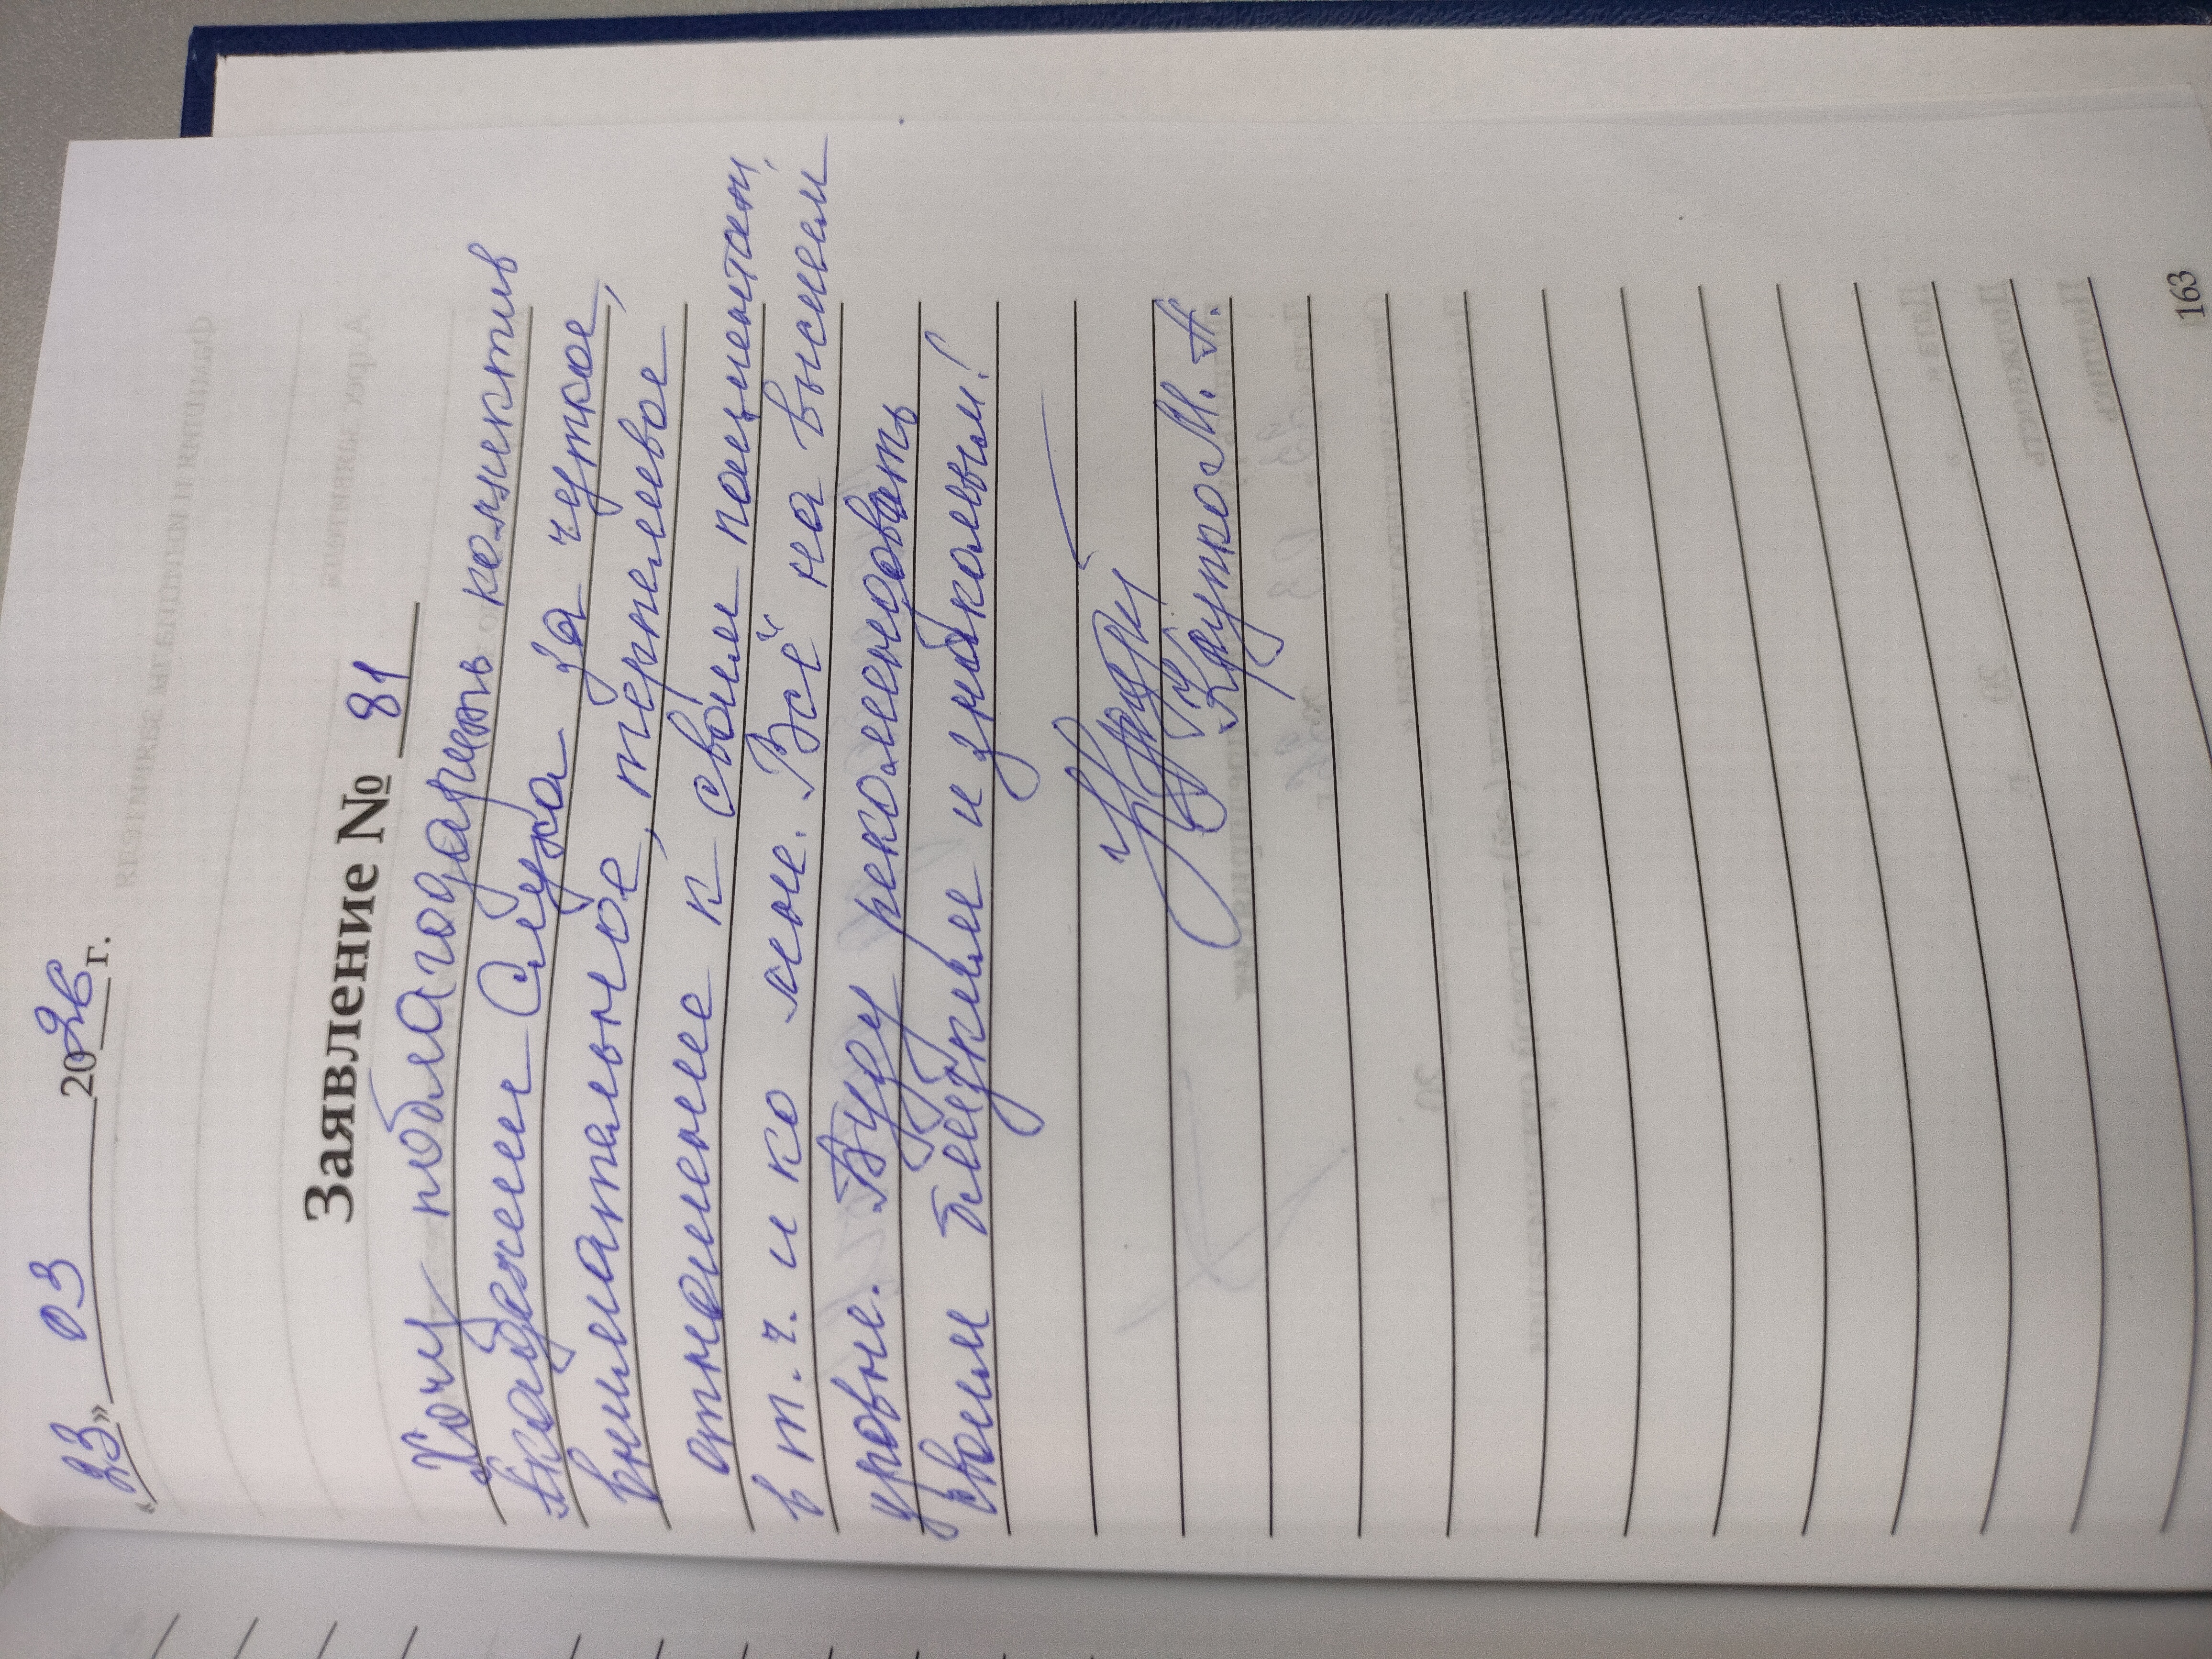 «23» 03 2026 г.
Заявление № 81
Хочу поблагодарить коллектив
Академии Слуха за чуткое,
внимательное, терпеливое
отношение к своим пациентам,
в т. ч. и ко мне. Всё на высшем
уровне. Буду рекомендовать
своим близким и знакомым!
Крупко М. А.
163